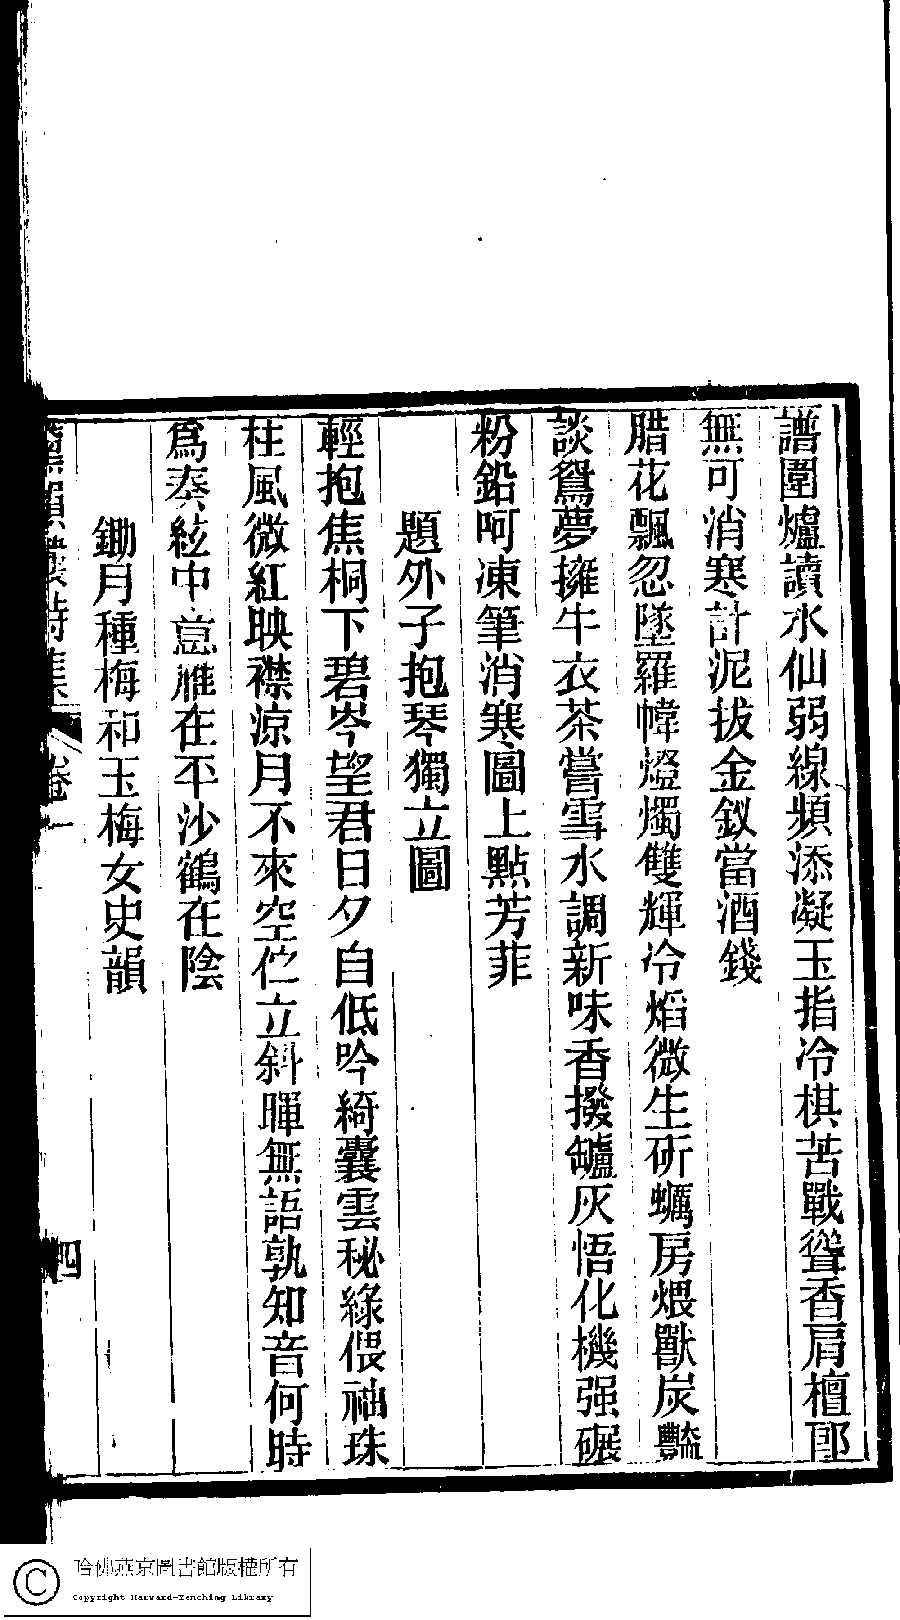 譜圍爐讀水仙弱線頻添凝玉指冷棋苦戰聳香肩檀郎
無可消寒計泥拔金釵當酒錢
腊花飄忽墜羅幃燈燭雙輝冷焰微生斫蠣房煨獸炭豔
談鴛夢擁牛衣茶嘗雪水調新味香撥罏灰悟化機强碾
粉鉛呵凍筆消寒圖上點芳菲
題外子抱琴獨立圖
輕抱焦桐下碧岑望君日夕自低吟綺囊雲秘綠偎袖珠
柱風微紅映襟涼月不來空伫立斜暉無語孰知音何時
爲奏絃中意雁在平沙鶴在陰
鋤月種梅和玉梅女史韻
詩集
卷一
四
哈佛燕京圖書館版權所有
Copyright Harvard-Yenching Library